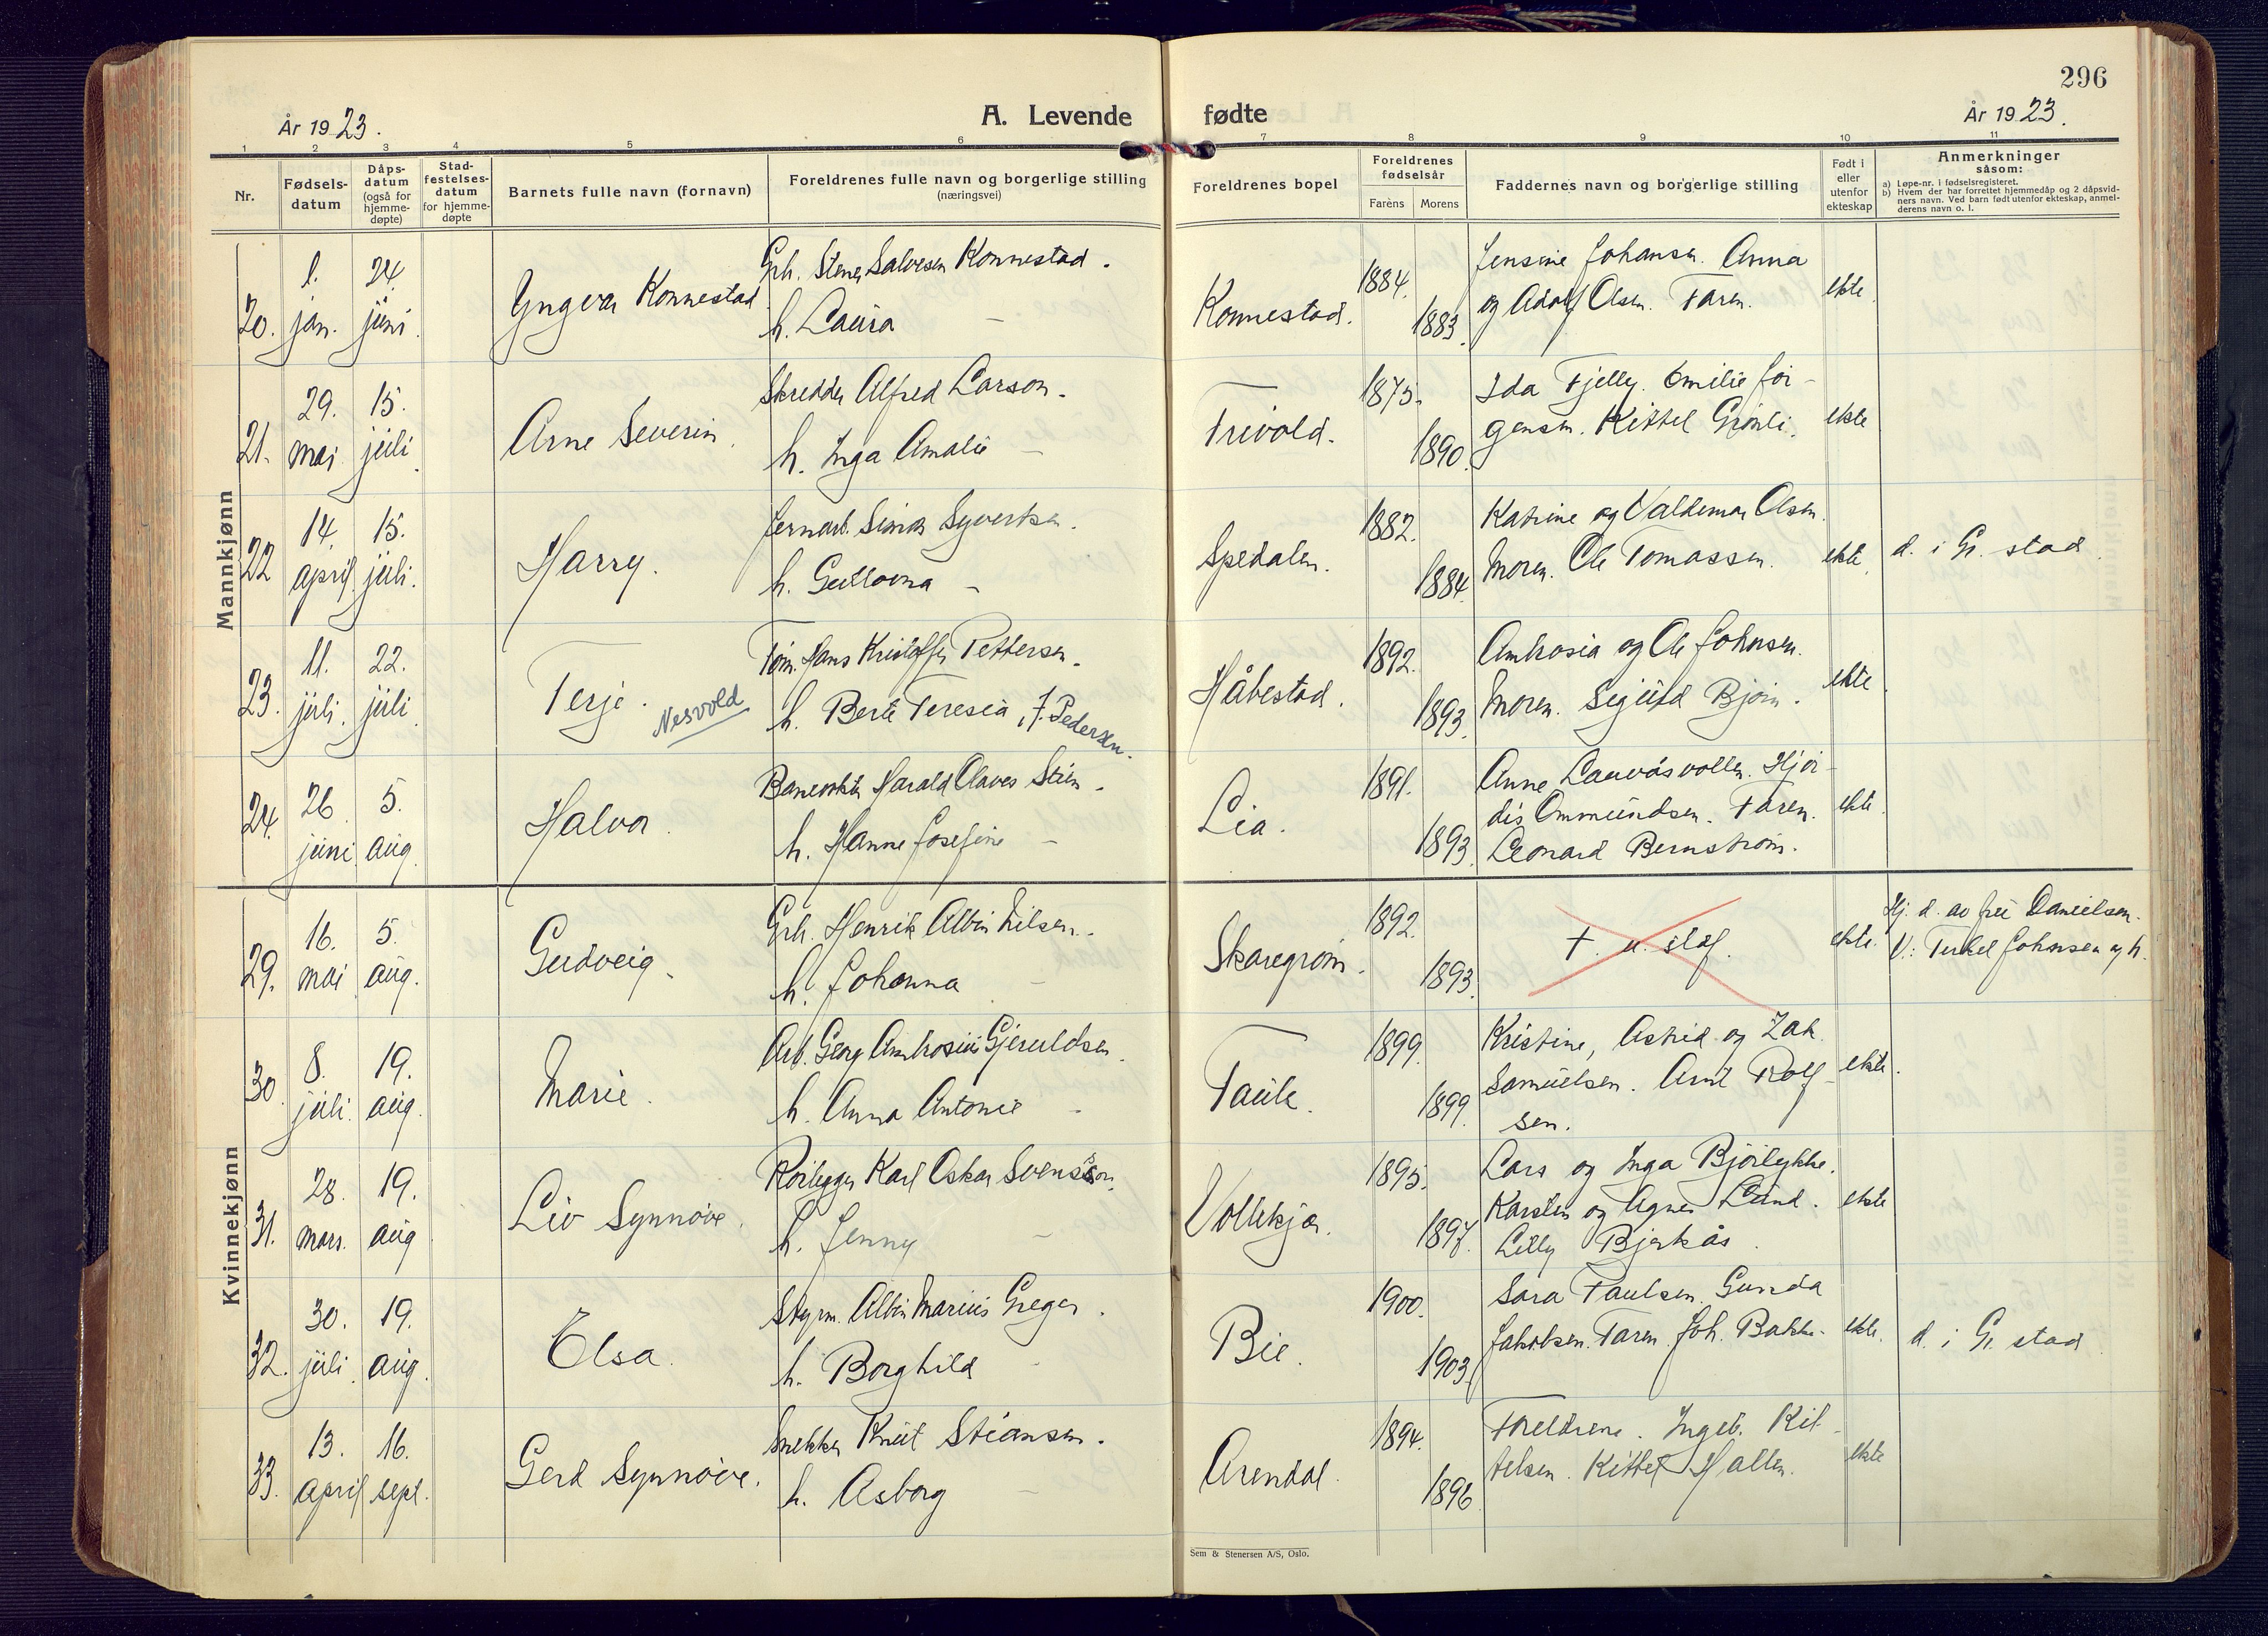 296
År 1923.
A. Levende
fødte
År 1923.
1 2 3 4 5 6 7 8 9 10 11
Nr.
Fødsels-
datum
Dåps-
datum
(også for
hjemme-
døpte)
Stad-
festelses-
datum
for hjemme-
døpte
Barnets fulle navn (fornavn)
Foreldrenes fulle navn og borgerlige stilling
(næringsvei)
Foreldrenes bopel
Foreldrenes
fødselsår
Farens Morens
Faddernes navn og borgerlige stilling
Født i
eller
utenfor
ekteskap
Anmerkninger
såsom:
a) Løpe-nr. i fødselsregisteret.
b) Hvem der har forrettet hjemmedåp og 2 dåpsvid-
ners navn. Ved barn født utenfor ekteskap, anmel-
derens navn o. l.
Mannkjønn
20.
1.
jan.
24.
juni
Yngvar Konnestad
Grh. Stener Salvesen Konnestad.
h. Laura —
Konnestad.
1884.
1883.
Jensine Johansen. Anna
og Adolf Olsen. Faren.
ekte
21.
29.
mai
15.
juli
Arne Severin.
Skredder Alfred Larson.
h. Inga Amalie —
Trivold.
1875.
1890.
Ida Fjelly. Emilie Jør-
gensen. Kittel Grønli.
ekte
22
14.
april
15.
juli.
Harry.
Jernarb. Simon Syvertsen.
h. Gullovna —
Spedalen.
1882.
1884
Katrine og Valdemar Olsen.
Moren. Ole Tomassen.
ekte
d. i Gr. stad
23.
11.
juli.
22.
juli
Terje.
Nesvold
Tøm. Hans Kristoffer Pettersen.
h. Berte Teresia, f. Pedersen.
Håbestad.
1892.
1893.
Ambrosia og Ole Johnsen.
Moren. Sigurd Bjørn.
ekte
24.
26.
juni
5.
aug.
Halvor.
Banevokter Harald Olaves Stien.
h. Hanne Josefine —
Lia.
1891.
1893.
Anne Lauvåsvollen. Hjør-
dis Ommundsen. Faren.
Leonard Bernstrøm.
ekte
Kvinnekjønn
29.
16.
mai
5.
aug.
Gudveig.
Grh. Henrik Albin Nilsen.
h. Johanna —
Skaregrøm.
1892.
1893.
ekte.
Hj. d. av fru Danielsen.
V.: Terkel Johnsen og h.
30.
8.
juli.
19.
aug.
Marie.
Arb. Georg Ambrosius Gjeruldsen.
h. Anna Antonie —
Taule.
1899.
1899.
Kristine, Astrid og Zak.
Samuelsen. Arnt Rolf-
sen.
ekte.
31.
28.
mars.
19.
aug
Liv Synnøve.
Rørlegger Karl Oskar Svensson.
h. Jenny —
Vollekjær.
1895.
1897.
Lars og Inga Bjørlykke.
Karsten og Agnes Lund.
Lilly Bjerkås.
ekte
32.
30.
juli.
19.
aug.
Elsa.
Styrm. Albin Marius Greger.
h. Borghild —
Bie.
1900.
1903.
Sara Paulsen. Gunda
Jakobsen. Faren. Joh. Bakke.
ekte.
d. i Gr. stad
33.
13.
april
16.
sept.
Gerd Synnøve.
Snekker Knut Stiansen.
h. Asborg —
Arendal.
1894.
1896.
Foreldrene. Ingeb. Kit-
telsen. Kittel Hallen.
ekte
Sem & Stenersen A/S, Oslo.